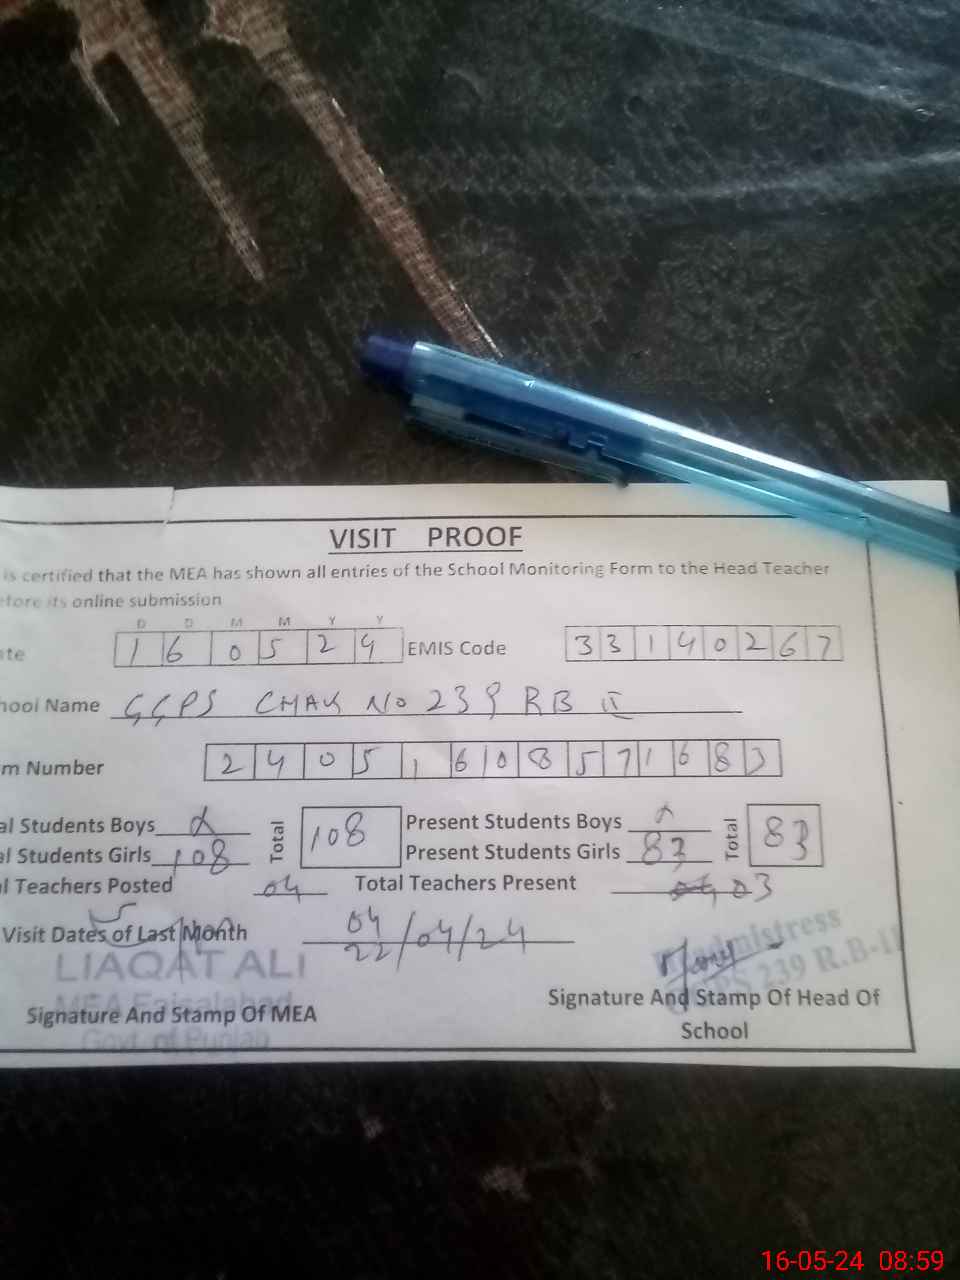 VISIT PROOF
is certified that the MEA has shown all entries of the School Monitoring Form to the Head Teacher
efore its online submission
D D M M Y Y
ate 1 6 0 5 2 4 EMIS Code 3 3 1 4 0 2 6 7
hool Name GGPS CHAK NO 239 RB II
m Number 2 4 0 5 1 6 0 8 5 7 1 6 8 3
al Students Boys x Total 108 Present Students Boys x Total 83
al Students Girls 108 Present Students Girls 83
l Teachers Posted 04 Total Teachers Present 04 03
Visit Dates of Last Month 04/22/04/24
LIAQAT ALI
MEA Faisalabad
Govt. of Punjab
Signature And Stamp Of MEA
Headmistress
GGPS 239 R.B-II
Signature And Stamp Of Head Of
School
16-05-24 08:59